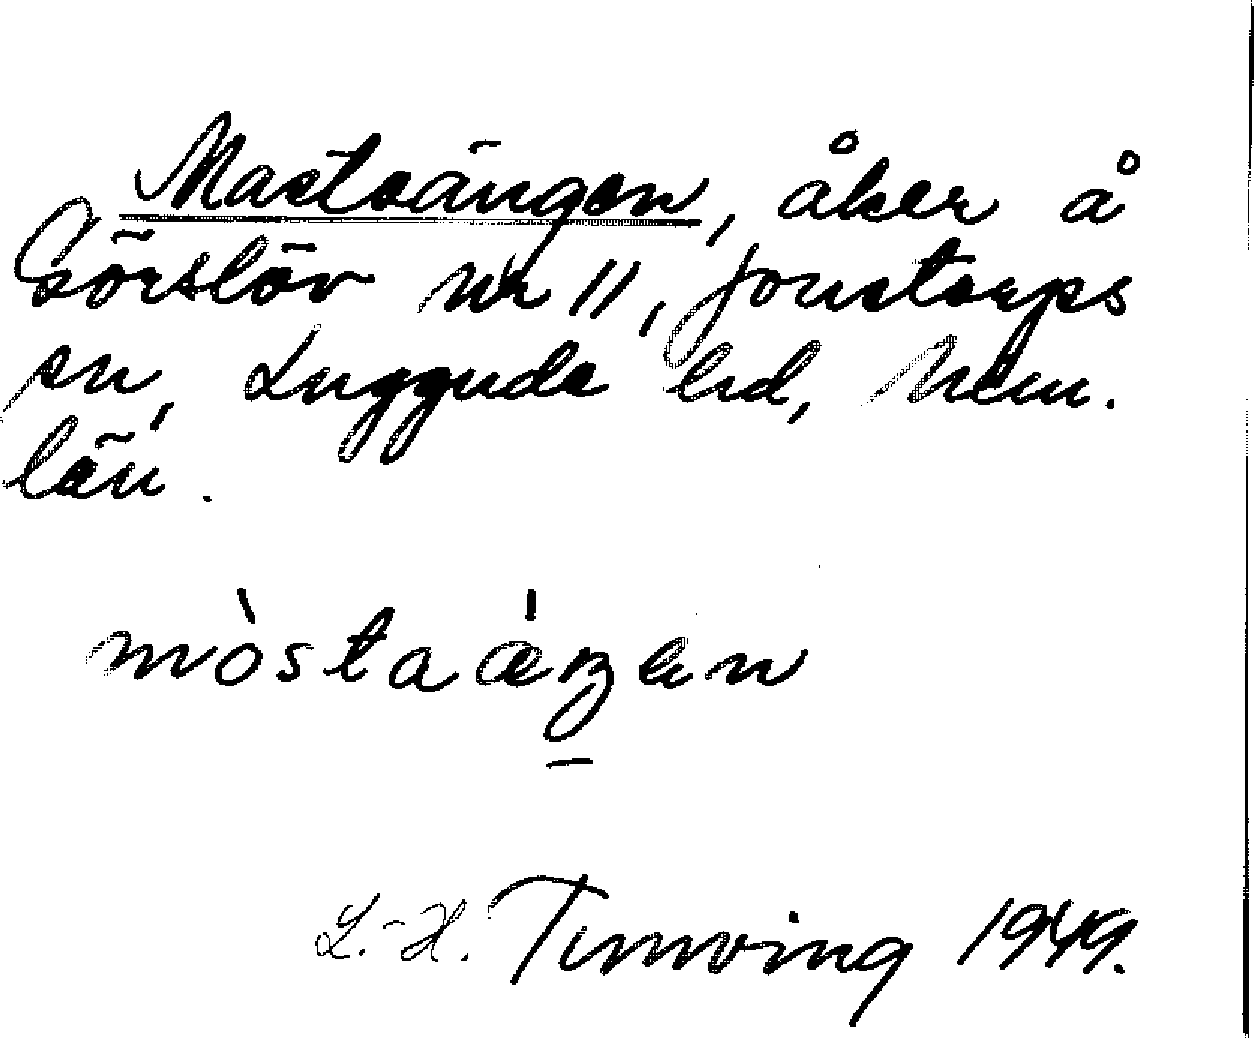 Mastaängen, åker å
Görslöv nr 11, Jonstorps
sn, Luggude hd, Mlm.
län.
mòstaáeŋen
L.-H. Tunving 1949.